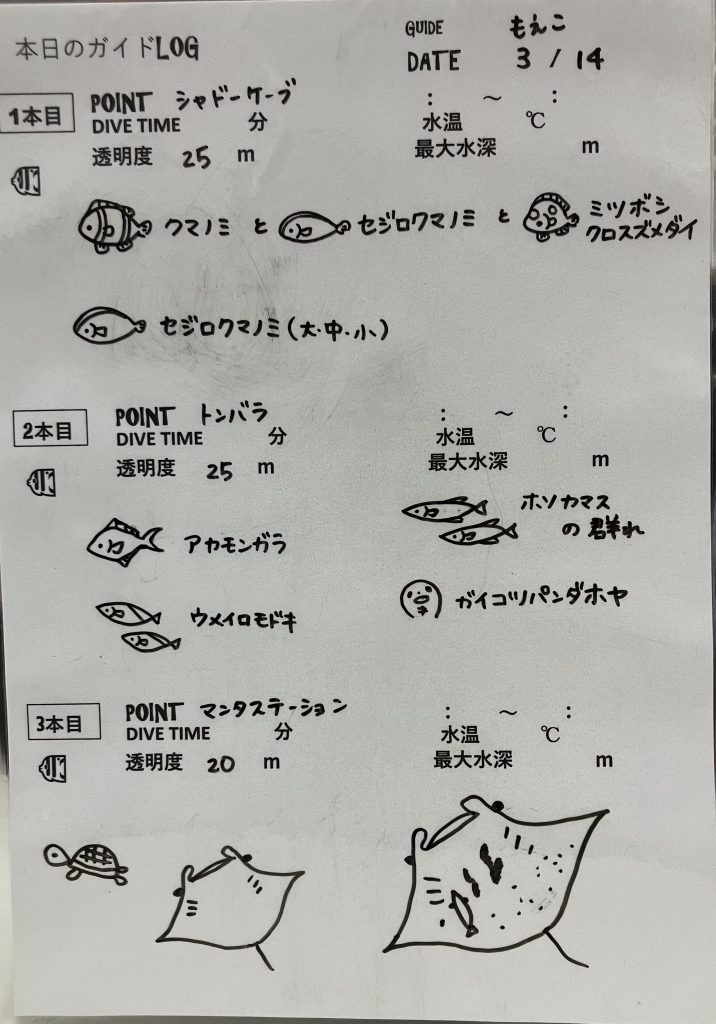 本日のガイドLOG
GUIDE もえこ
DATE 3 / 14
1本目
POINT シャドーケーブ
: ～ :
DIVE TIME 分
水温 ℃
透明度 25 m
最大水深 m
クマノミ と セジロクマノミ と ミツボシ
クロスズメダイ
セジロクマノミ(大・中・小)
2本目
POINT トンバラ
: ～ :
DIVE TIME 分
水温 ℃
透明度 25 m
最大水深 m
アカモンガラ
ホソカマス
の群れ
ウメイロモドキ
ガイコツパンダホヤ
3本目
POINT マンタステーション
: ～ :
DIVE TIME 分
水温 ℃
透明度 20 m
最大水深 m